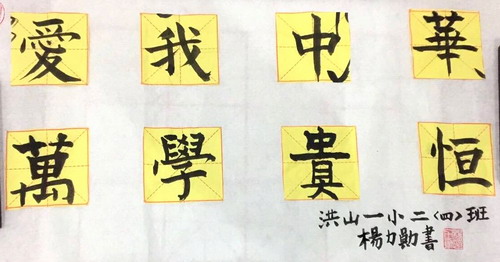 愛我中華
萬學貴恒
洪山一小二〈四〉班
楊力勛書